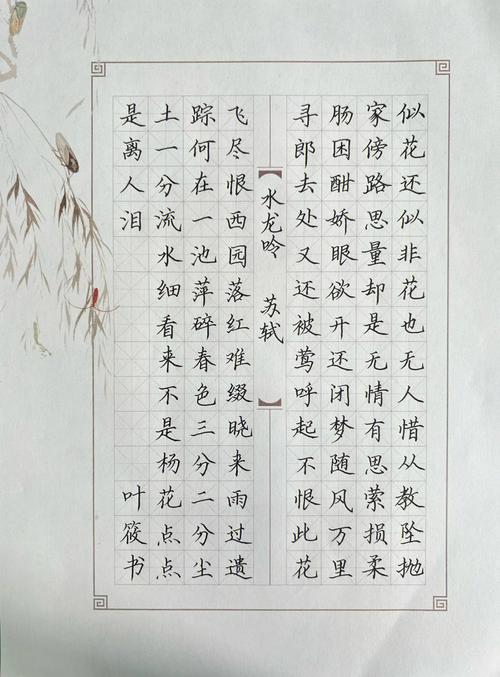 似花还似非花也无人惜从教坠抛
家傍路思量却是无情有思萦损柔
肠困酣娇眼欲开还闭梦随风万里
寻郎去处又还被莺呼起不恨此花
水龙吟 苏轼
飞尽恨西园落红难缀晓来雨过遗
踪何在一池萍碎春色三分二分尘
土一分流水细看来不是杨花点点
是离人泪 叶筱书